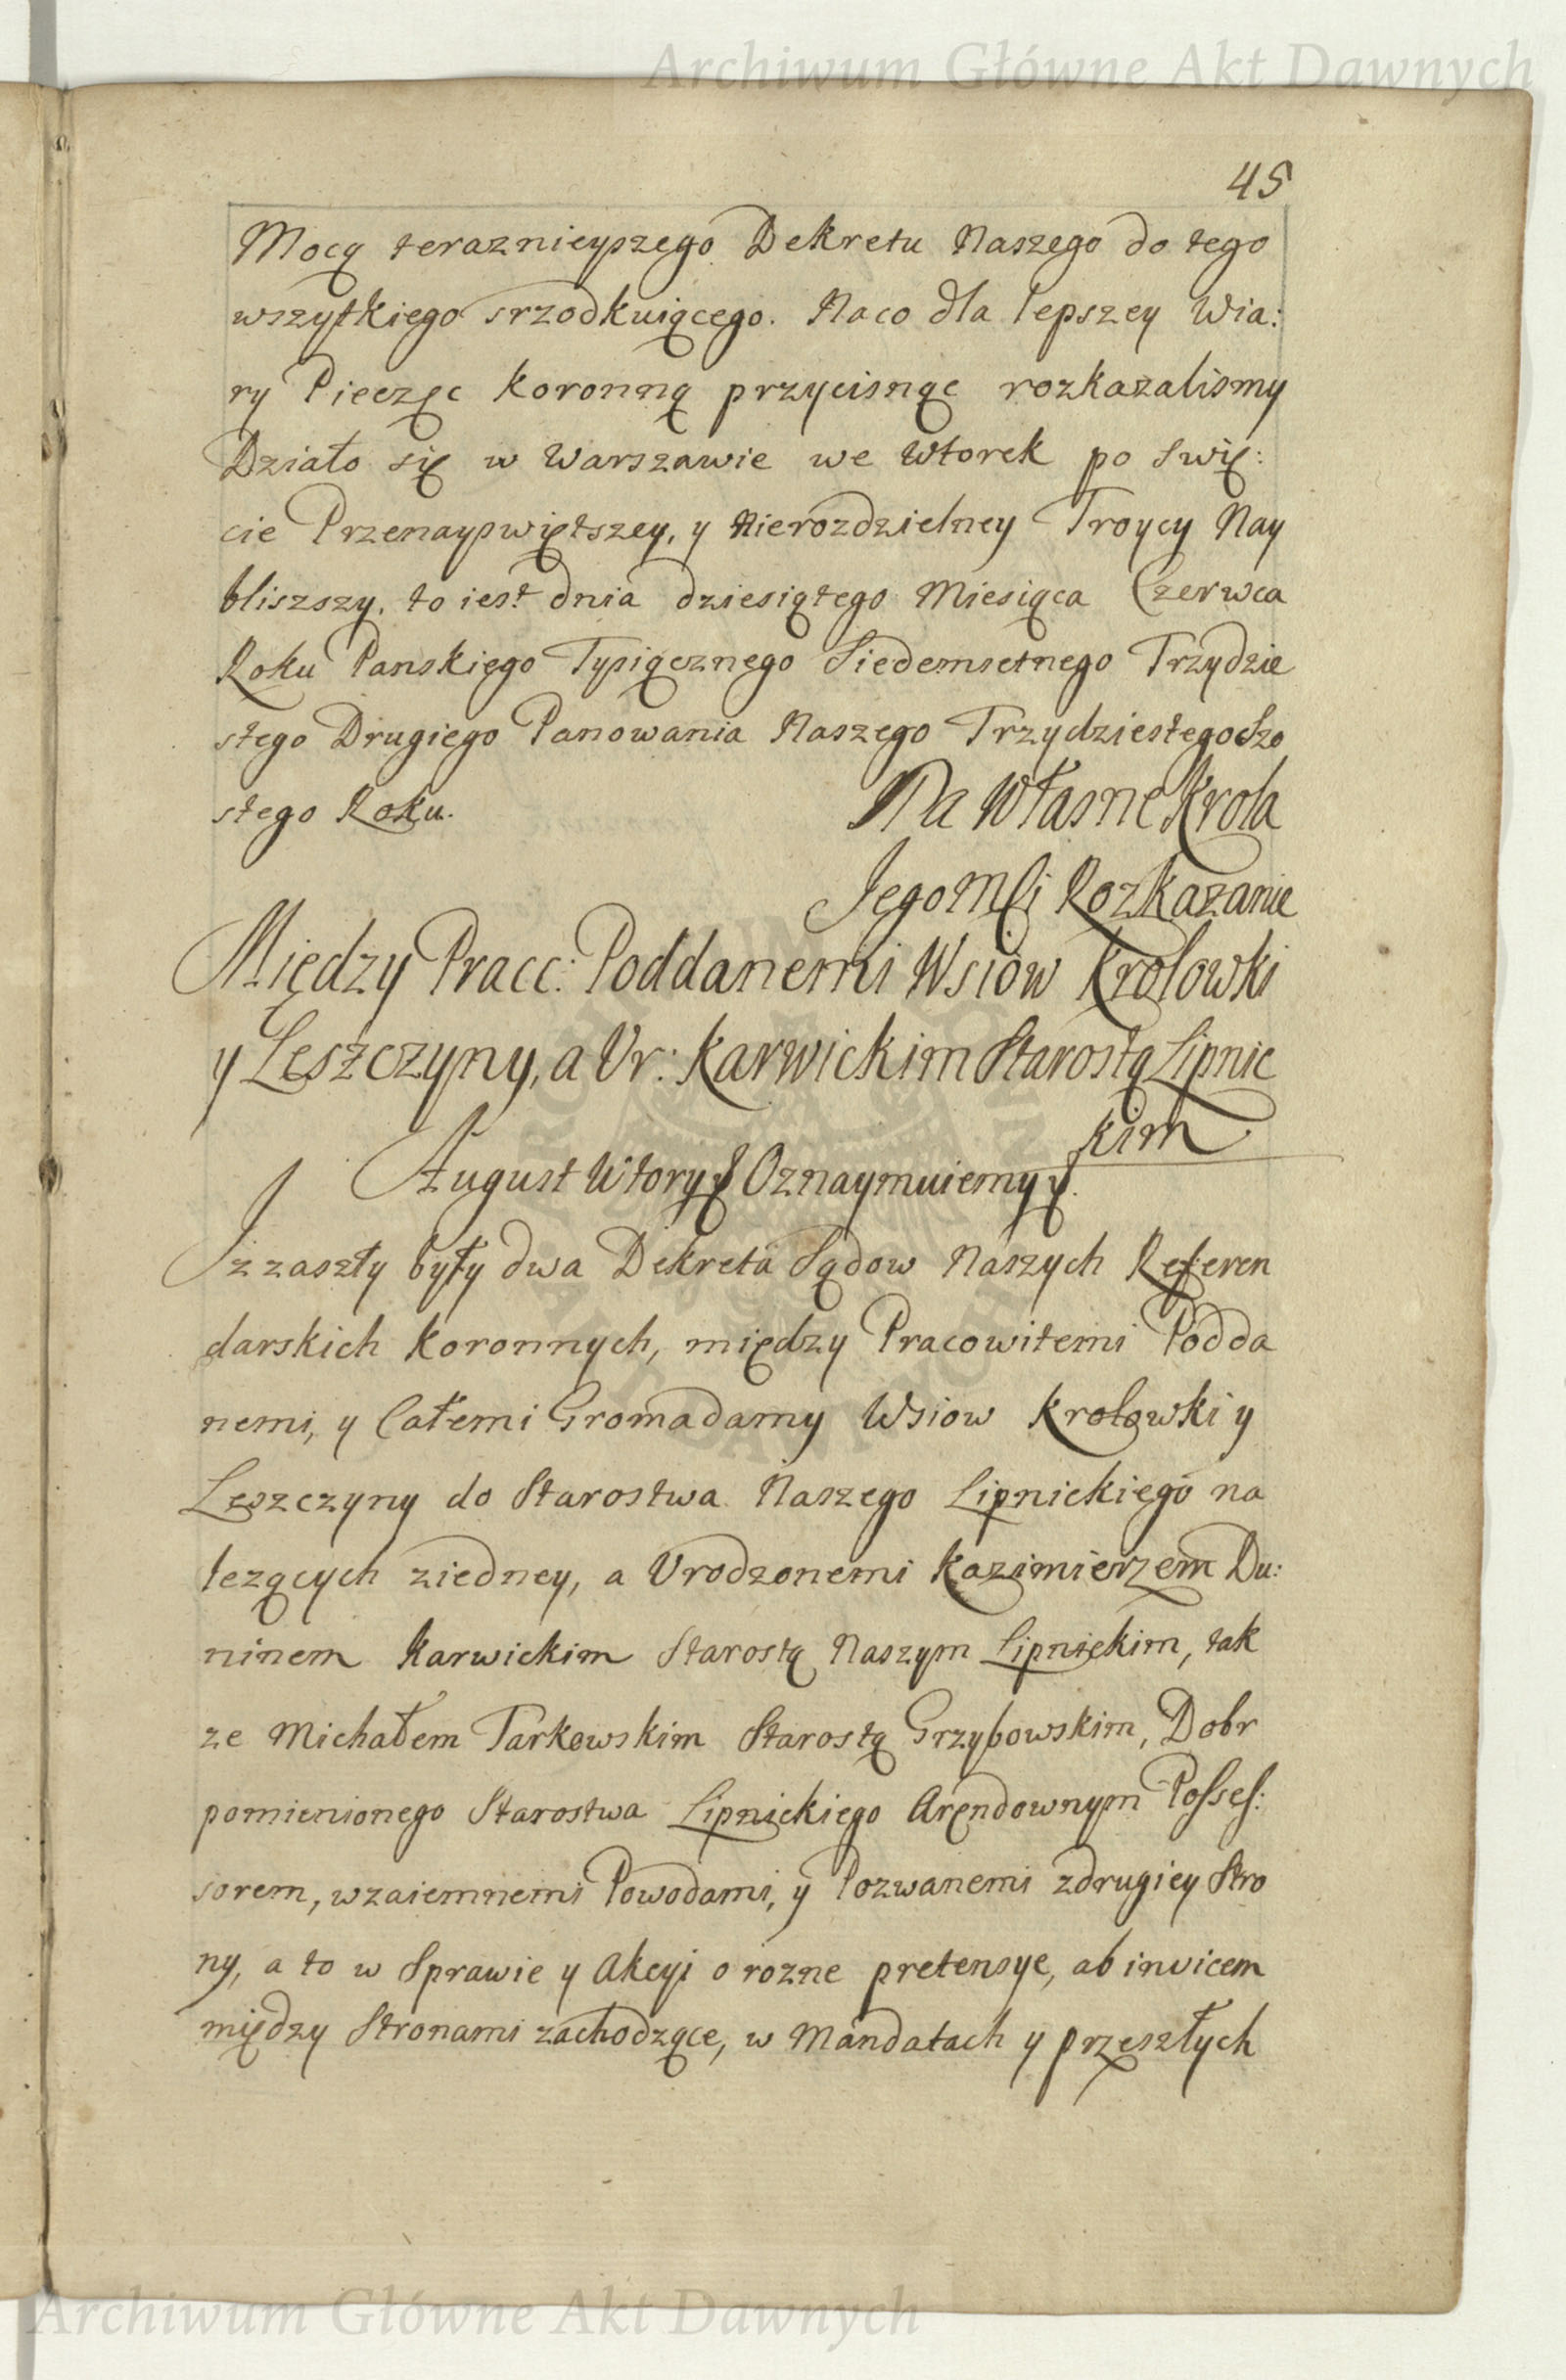 Archiwum Główne Akt Dawnych
45
Mocą teraznieyszego Dekretu Naszego do tego
wszytkiego srzodkuiącego. Naco dla lepszey Wia:
ry Pieczęc Koronną przycisnąc rozkazalismy
Działo się w Warszawie we Wtorek po Swię:
cie Przenayswiętszey, y Nierozdzielney Troycy Nay
bliszszy, to iest dnia dziesiątego Miesiąca Czerwca
Roku Panskiego Tysiącznego Siedemsetnego Trzydzie
stego Drugiego Panowania Naszego Trzydziestego Szo
stego Roku.
Na Własne Krola
Jego Mści Rozkazanie
Między Pracc: Poddanemi Wsiow Krolowki
y Leszczyny, a Ur: Karwickim Starostą Lipnic
kim
August Wtory Oznaymuiemy
Iz zaszły były dwa Dekreta Sądow Naszych Referen
darskich Koronnych, między Pracowitemi Podda
nemi, y Całemi Gromadamy Wsiow Krolowki y
Leszczyny do Starostwa Naszego Lipnickiego na
lezących ziedney, a Urodzonemi Kazimierzem Du:
ninem Karwickim Starostą Naszym Lipnickim, tak
ze Michałem Tarkowskim Starostą Grzybowskim, Dobr
pomienionego Starostwa Lipnickiego Arendownym Posses:
sorem, wzaiemnemi Powodami, y Pozwanemi zdrugiey Stro
ny, a to w Sprawie y Akcyi o rozne pretensye, ab invicem
między Stronami zachodzące, w Mandatach y przeszłych
Archiwum Główne Akt Dawnych